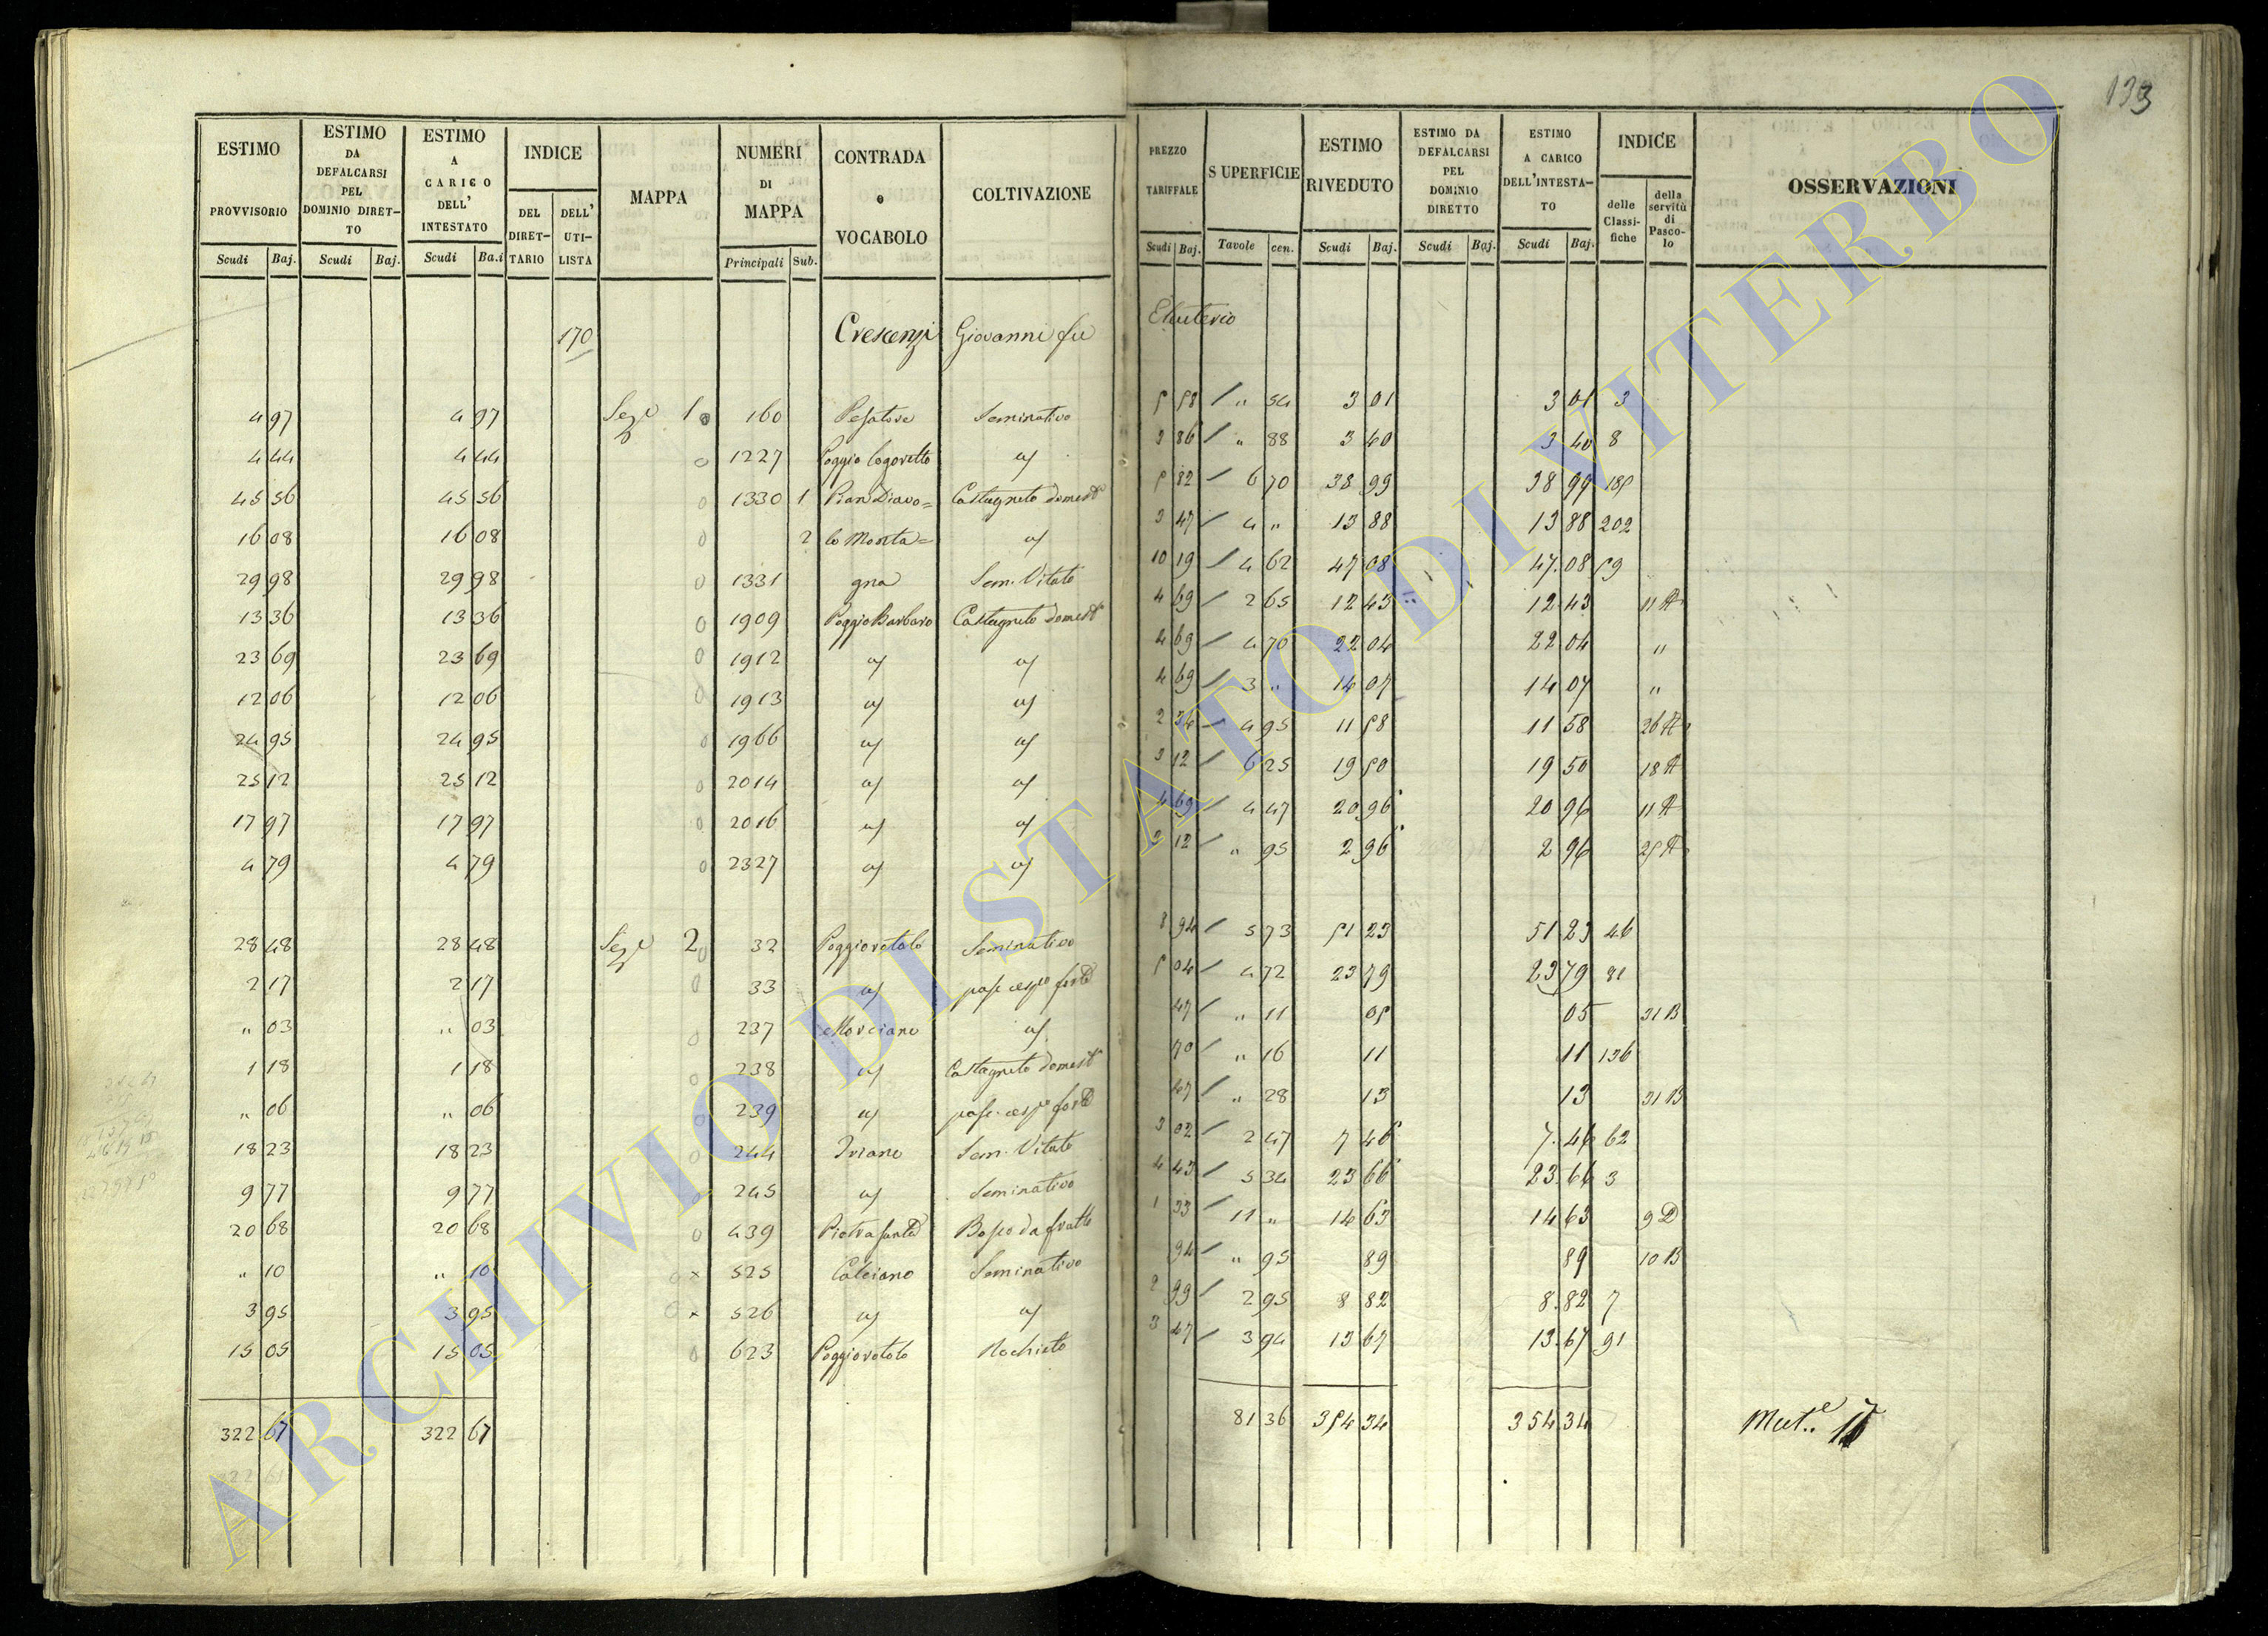 133
ESTIMO PROVVISORIO Scudi Baj.
ESTIMO DA DEFALCARSI PEL DOMINIO DIRET-TO Scudi Baj.
ESTIMO A CARICO DELL' INTESTATO Scudi Ba.i
INDICE DEL DIRET-TARIO DELL' UTI-LISTA
MAPPA
NUMERI DI MAPPA Principali Sub.
CONTRADA o VOCABOLO
COLTIVAZIONE
PREZZO TARIFFALE Scudi Baj.
SUPERFICIE Tavole cen.
ESTIMO RIVEDUTO Scudi Baj.
ESTIMO DA DEFALCARSI PEL DOMINIO DIRETTO Scudi Baj.
ESTIMO A CARICO DELL'INTESTA-TO Scudi Baj.
INDICE delle Classi-fiche della servitù di Pasco-lo
OSSERVAZIONI
170 Crescenzi Giovanni fu Eluterio
4 97 4 97 Seze 1 160 Pesatore Seminativo 5 58 " 54 3 01 3 01 3
4 44 4 44 1227 Poggio Cogoretto a/ 3 86 " 88 3 40 3 40 8
45 56 45 56 1330 1 Pian Diavo= Castagneto domest 5 82 6 70 38 99 38 99 185
16 08 16 08 2 lo Monta= a/ 3 47 4 " 13 88 13 88 202
29 98 29 98 1331 gna Sem. Vitato 10 19 4 62 47 08 47 08 59
13 36 13 36 1909 Poggio Barbaro Castagneto domest 4 69 2 65 12 43 12 43 11 A
23 69 23 69 1912 a/ a/ 4 69 4 70 22 04 22 04 "
12 06 12 06 1913 a/ a/ 4 69 3 " 14 07 14 07 "
24 95 24 95 1966 a/ a/ 2 34 4 95 11 58 11 58 26 A
25 12 25 12 2014 a/ a/ 3 12 6 25 19 50 19 50 18 A
17 97 17 97 2016 a/ a/ 4 69 4 47 20 96 20 96 11 A
4 79 4 79 2327 a/ a/ 3 12 " 95 2 96 2 96 25 A
28 48 28 48 Seze 2 32 Poggiovetolo Seminativo 8 94 5 73 51 23 51 23 46
2 17 2 17 33 a/ 5 04 4 72 23 79 23 79 81
" 03 " 03 237 Morciano a/ 47 " 11 05 05 31 B
1 18 1 18 238 a/ Castagneto domest 70 " 16 11 11 136
" 06 " 06 239 a/ 47 " 28 13 13 31 B
18 23 18 23 244 Iriano Sem. Vitato 3 02 2 47 7 46 7 46 62
9 77 9 77 245 a/ Seminativo 4 43 5 34 23 66 23 66 3
20 68 20 68 439 Pietra fantd Bosco da frutto 1 33 11 " 14 63 14 63 9 D
" 10 " 10 525 Calciano Seminativo 94 " 95 89 89 10 B
3 95 3 95 526 a/ a/ 2 99 2 95 8 82 8 82 7
15 05 15 05 623 Poggiovetolo Nochieto 3 47 3 94 13 67 13 67 91
322 67 322 67 81 36 354 34 354 34 Mut.e
ARCHIVIO DI STATO DI VITERBO